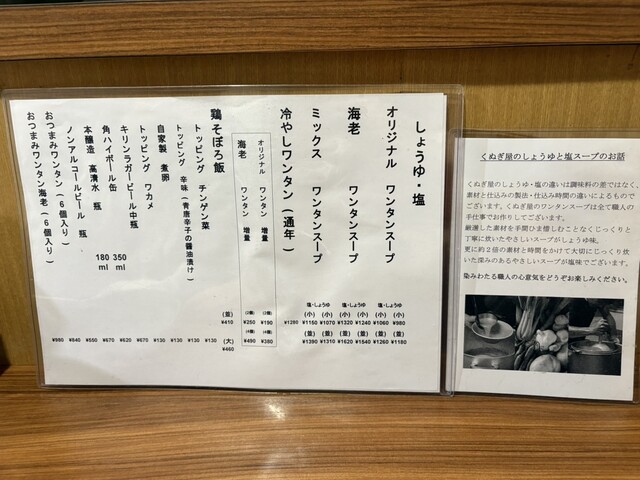 しょうゆ・塩
オリジナル ワンタンスープ
塩・しょうゆ
(小) (小)
¥1060 ¥980
(並) (並)
¥1260 ¥1180
海老 ワンタンスープ
塩・しょうゆ
(小) (小)
¥1320 ¥1240
(並) (並)
¥1620 ¥1540
ミックス ワンタンスープ
塩・しょうゆ
(小) (小)
¥1150 ¥1070
(並) (並)
¥1390 ¥1310
冷やしワンタン(通年)
¥1280
オリジナル ワンタン 増量
(2個)
¥190
(4個)
¥380
海老 ワンタン 増量
(2個)
¥250
(4個)
¥490
鶏そぼろ飯
(並)
¥410
(大)
¥460
トッピング チンゲン菜
¥130
トッピング 辛味(青唐辛子の醤油漬け)
¥130
自家製 煮卵
¥130
トッピング ワカメ
¥130
キリンラガービール中瓶
¥670
角ハイボール缶
350ml
¥620
本醸造 高清水 瓶
180ml
¥670
ノンアルコールビール 瓶
¥550
おつまみワンタン(6個入り)
¥840
おつまみワンタン海老(6個入り)
¥990
くぬぎ屋のしょうゆと塩スープのお話
くぬぎ屋のしょうゆ・塩の違いは調味料の差ではなく、
素材と仕込みの製法・仕込み時間の違いによるもので
ございます。くぬぎ屋のワンタンスープは全て職人の
手仕事でお作りしてございます。
厳選した素材を手間ひま惜しむことなくじっくりと
丁寧に炊いたやさしいスープがしょうゆ味。
更に約2倍の素材と時間をかけて大切にじっくり炊
いた深みのあるやさしいスープが塩味でございます。
染みわたる職人の心意気をどうぞお楽しみください。